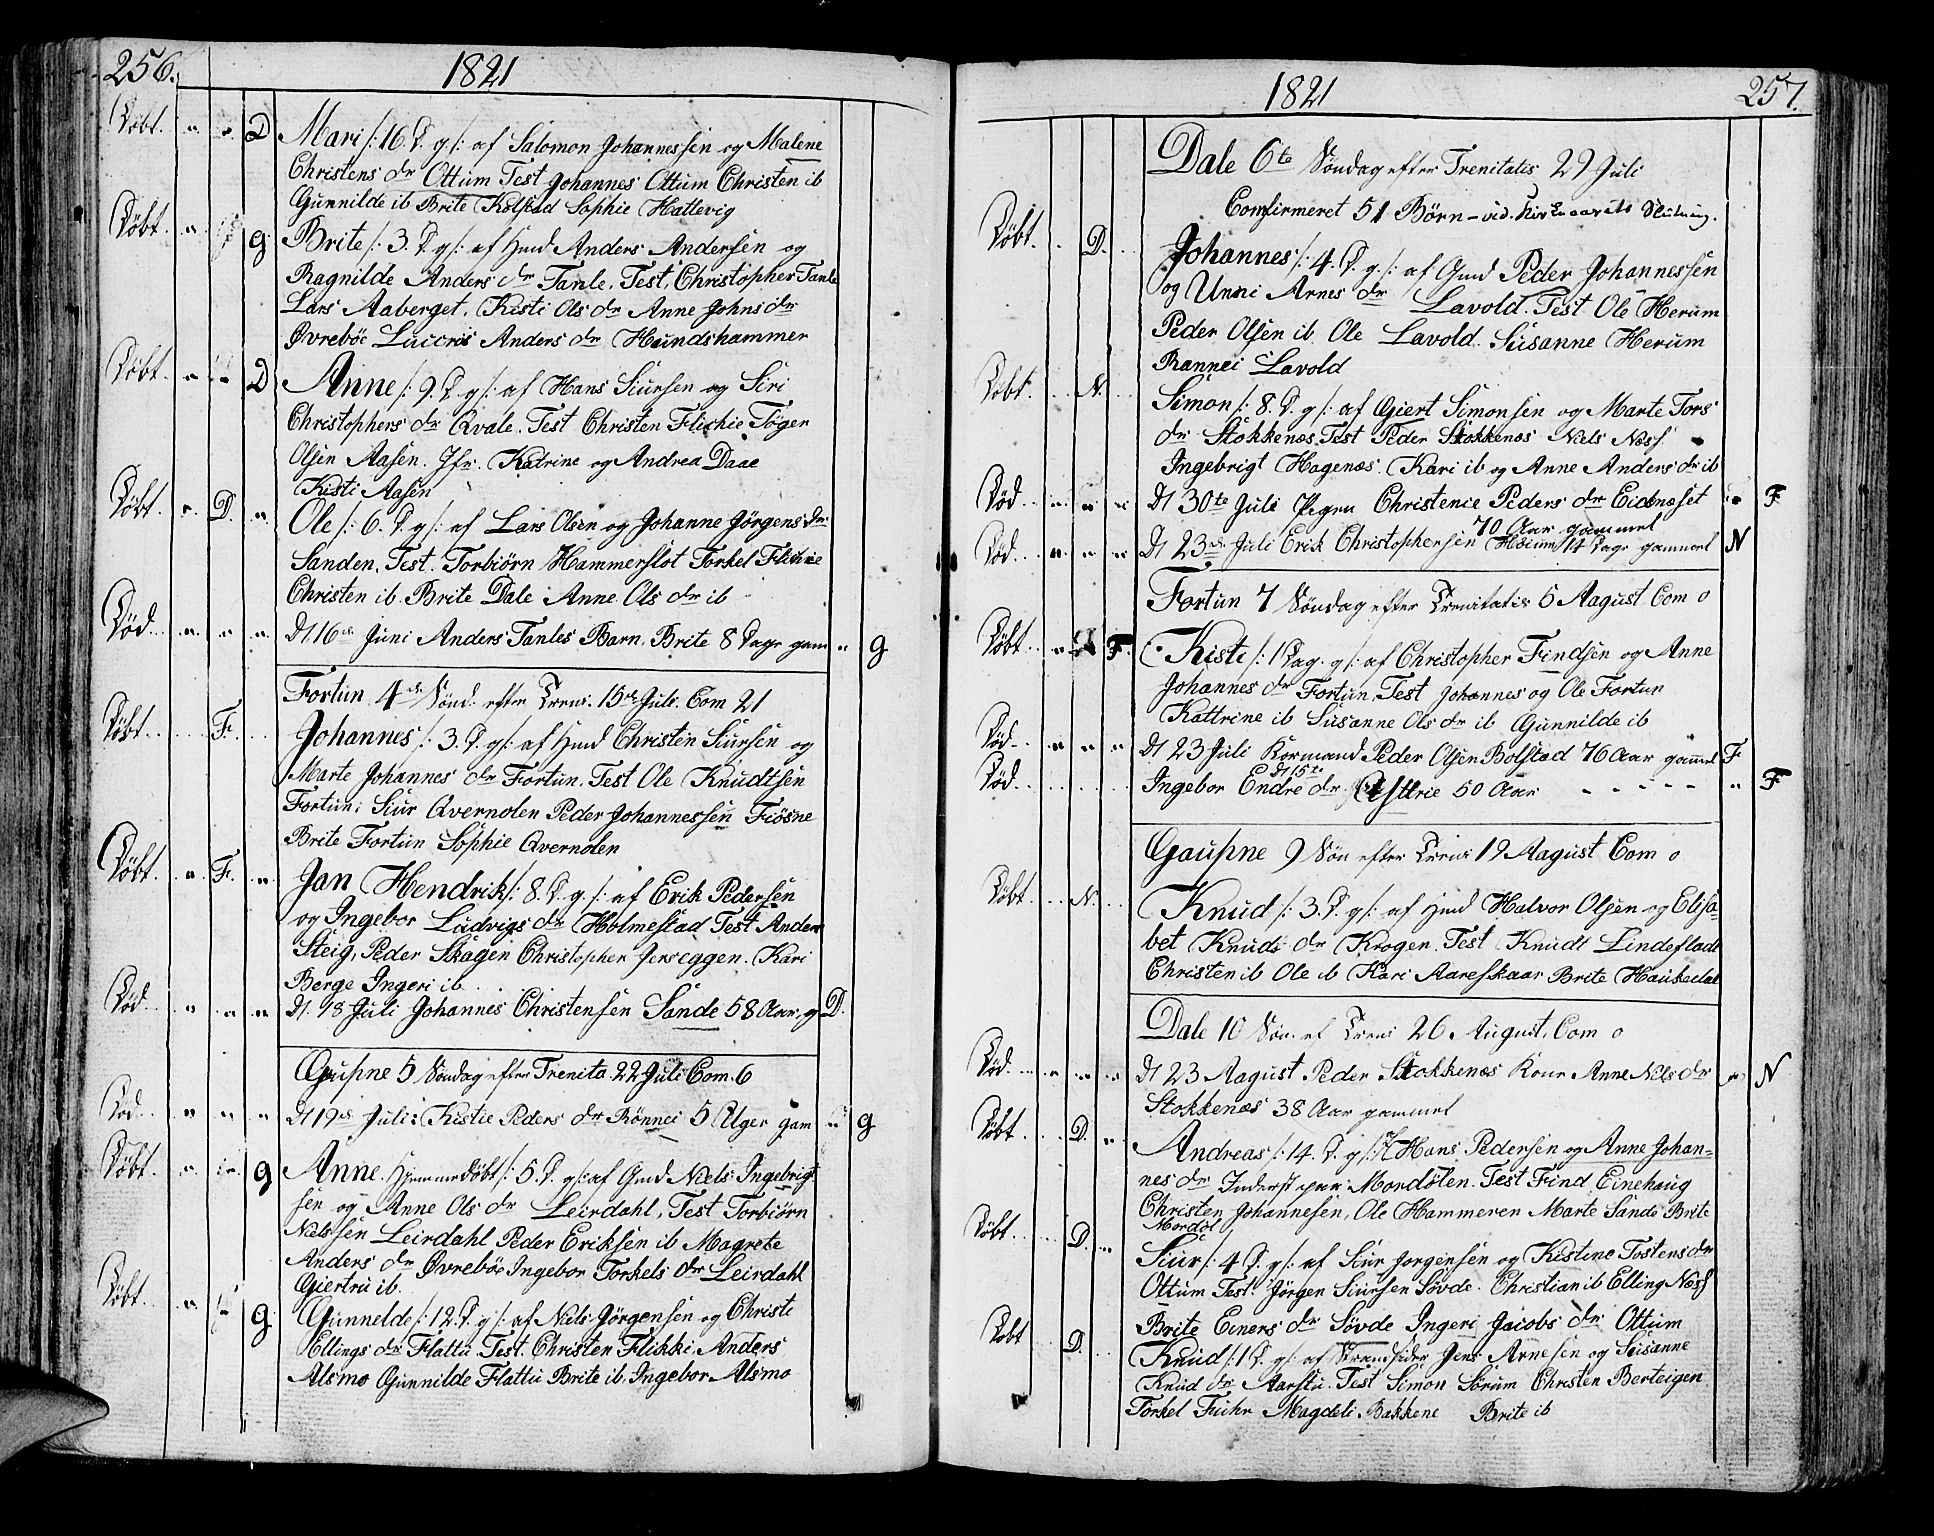 256. 1821
Døbt. D Mari /: 16. D. g /: af Salomon Johannessen og Malene
Christens dr Ottum Test Johannes Ottum Christen ib
Gunnilde ib Brite Kolstad Sophie Hattevig
Døbt. g Brite /: 3. D. g /: af Hmd Anders Andersen og
Ragnilde Anders dr Tanle. Test. Christopher Tanle
Lars Aaberget. Kisti Ols dr Anne Johns dr
Øvrebøe Luccris Anders dr Hundshammer
Døbt. D Anne /: 9. D. g /: af Hans Siursen og Siri
Christophers dr Qvale. Test Christen Flickie Tøger
Olsen Aasen. Jfr. Katrine og Andrea Daae
Kisti Aasen
Døbt. D. Ole /: 6. D. g /: af Lars Olsen og Johanne Jørgens dr.
Sanden. Test. Torbiørn Hammerslot Torkel Flickie
Christen ib. Brite Dale Anne Ols dr ib
Død. Dt. 16de Juni Anders Tanles Barn. Brite 8 Dage gam g
Fortun 4de Sønd. efter Treni. 15de Juli. Com 21
Døbt. F. Johannes /: 3. D. g /: af Hmd Christen Siursen og
Marte Johannes dr Fortun. Test Ole Knudtsen
Fortun. Siur Qvernolen Peder Johannessen Fiøsne
Brite Fortun Sophie Qvernolen
Døbt. F. Jan Hendrik /: 8. D. g. /: af Erik Pedersen
og Ingebor Ludvigs dr Holmestad Test Anders
Steig, Peder Skagen Christopher Jerseggen. Kari
Berge Ingeri ib.
Død. Dt. 18 Juli Johannes Christensen Sande 58 Aar g D.
Gaupne 5 Søndag efter Trenita. 22 Juli Com. 6
Død. Dt 19de Juli: Kistie Peders dr Rønnei 5 Uger gam g
Døbt. g Anne. Hjemmedøbt /: 5. D. g /: af Gmd Niels Ingebrigt
sen og Anne Ols dr Leirdahl, Test Torbiørn
Nielssen Leirdahl Peder Eriksen ib Magrete
Anders dr Øvrebøe Ingebor Torkels dr Leirdahl
Giertru ib.
Døbt. g Gunnelde /: 12. D. g /: af Niels Jørgensen og Christi
Ellings dr Flattu. Test. Christen Flikki. Anders
Alsmo Gunnilde Flattu Brite ib. Ingebor Alsmo
1821 257.
Dale 6te Søndag efter Trenitatis 29 Juli
Comfirmeret 51 Børn - vid. Kirkeaarets Slutning.
Døbt. D. Johannes /: 4. D. g. /: af Gmd Peder Johannessen
og Unni Arnes dr Lavold. Test Ole Herum
Peder Olsen ib. Ole Lavold. Susanne Herum
Rannei Lavold
Døbt. N. Simon /: 8. D. g /: af Giert Simonsen og Marte Tors
dr Stokkenæs. Test Peder Stokkenæs Niels Næss.
Ingebrigt Hagenæs. Kari ib og Anne Anders dr ib
Død. Dt 30te Juli Pigen Christenie Peders dr Eidenæset F
70 Aar gammel
Død. Dt 23de Juli Erik Christophersen Høium 14 Dage gammel N
Fortun 7 Søndag efter Trenitatis 5 August Com o
Døbt. F. Kisti /: 1 Dag. g /: af Christopher Findsen og Anne
Johannes dr Fortun. Test Johannes og Ole Fortun
Kattrine ib Susanne Ols dr ib Gunnilde ib
Død. Dt 23 Juli Kormand Peder Olsen Bolstad 76 Aar gammel F
Dt 15te
Død. Ingebor Endre dr 50 Aar F
Gaupne 9 Søn efter Treni 19 August Com o
Døbt. N. Knud /: 3. D. g /: af Hmd Halvor Olsen og Elisa-
bet Knuds dr Krogen. Test Knudt Lindefladt
Christen ib Ole ib Kari Aaresskaar Brite Haukedal
Dale 10 Søn. ef Treni 26 August. Com o
Død. Dt 23 August Peder Stokkenæs Kone Anne Niels dr N
Stokkenæs 38 Aar gammel
Døbt. D. Andreas /: 14. D. g /: af Hans Pedersen og Anne Johan-
nes dr Inderst paa Mordølen. Test Find Einehaug
Christen Johannesen, Ole Hammeren Marte Sande Brite
Mordøl
Døbt. D. Siur /: 4 D. g /: af Siur Jorgensen og Kistine Tostens dr
Ottum Test. Jörgen Siursen Søvde. Christian ib Elling Næss
Brite Einers dr Søvde Ingeri Jacobs dr Ottum
Døbt D. Knud /: 1 D. g /: af Strandsider Jens Arnesen og Susanne
Knud dr Aarstu. Test Simon Sorum Christen Berteigen
Torkel Fuhr Magdeli Bakkene Brite ib